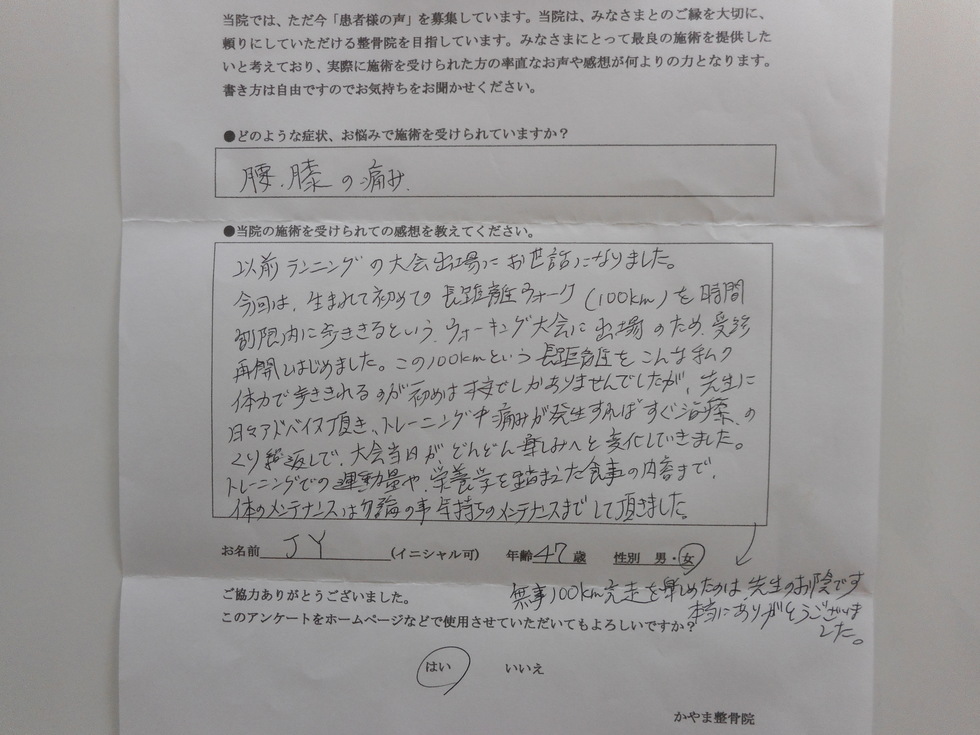 当院では、ただ今「患者様の声」を募集しています。当院は、みなさまとのご縁を大切に、
頼りにしていただける整骨院を目指しています。みなさまにとって最良の施術を提供した
いと考えており、実際に施術を受けられた方の率直なお声や感想が何よりの力となります。
書き方は自由ですのでお気持ちをお聞かせください。
●どのような症状、お悩みで施術を受けられていますか？
腰、膝の痛み、
●当院の施術を受けられての感想を教えてください。
以前ランニングの大会出場にお世話になりました。
今回は、生まれて初めての長距離ウォーク(100km)を時間
制限内に歩ききるという、ウォーキング大会に出場のため、受診
再開しはじめました。この100kmという長距離をこんな私の
体力で歩ききれるのが初めは不安でしかありませんでしたが、先生に
日々アドバイス頂き、トレーニング中痛みが発生すればすぐ治療、の
くり返しで、大会当日が、どんどん楽しみへと変化していきました。
トレーニングでの運動量や、栄養学を踏まえた食事の内容まで、
体のメンテナンスは勿論の事気持ちのメンテナンスまでして頂きました。
お名前 JY (イニシャル可) 年齢 47 歳 性別 男・女
無事100km完走を楽しめたのは、先生のお陰です
本当にありがとうございま
した。
ご協力ありがとうございました。
このアンケートをホームページなどで使用させていただいてもよろしいですか？
はい いいえ
かやま整骨院